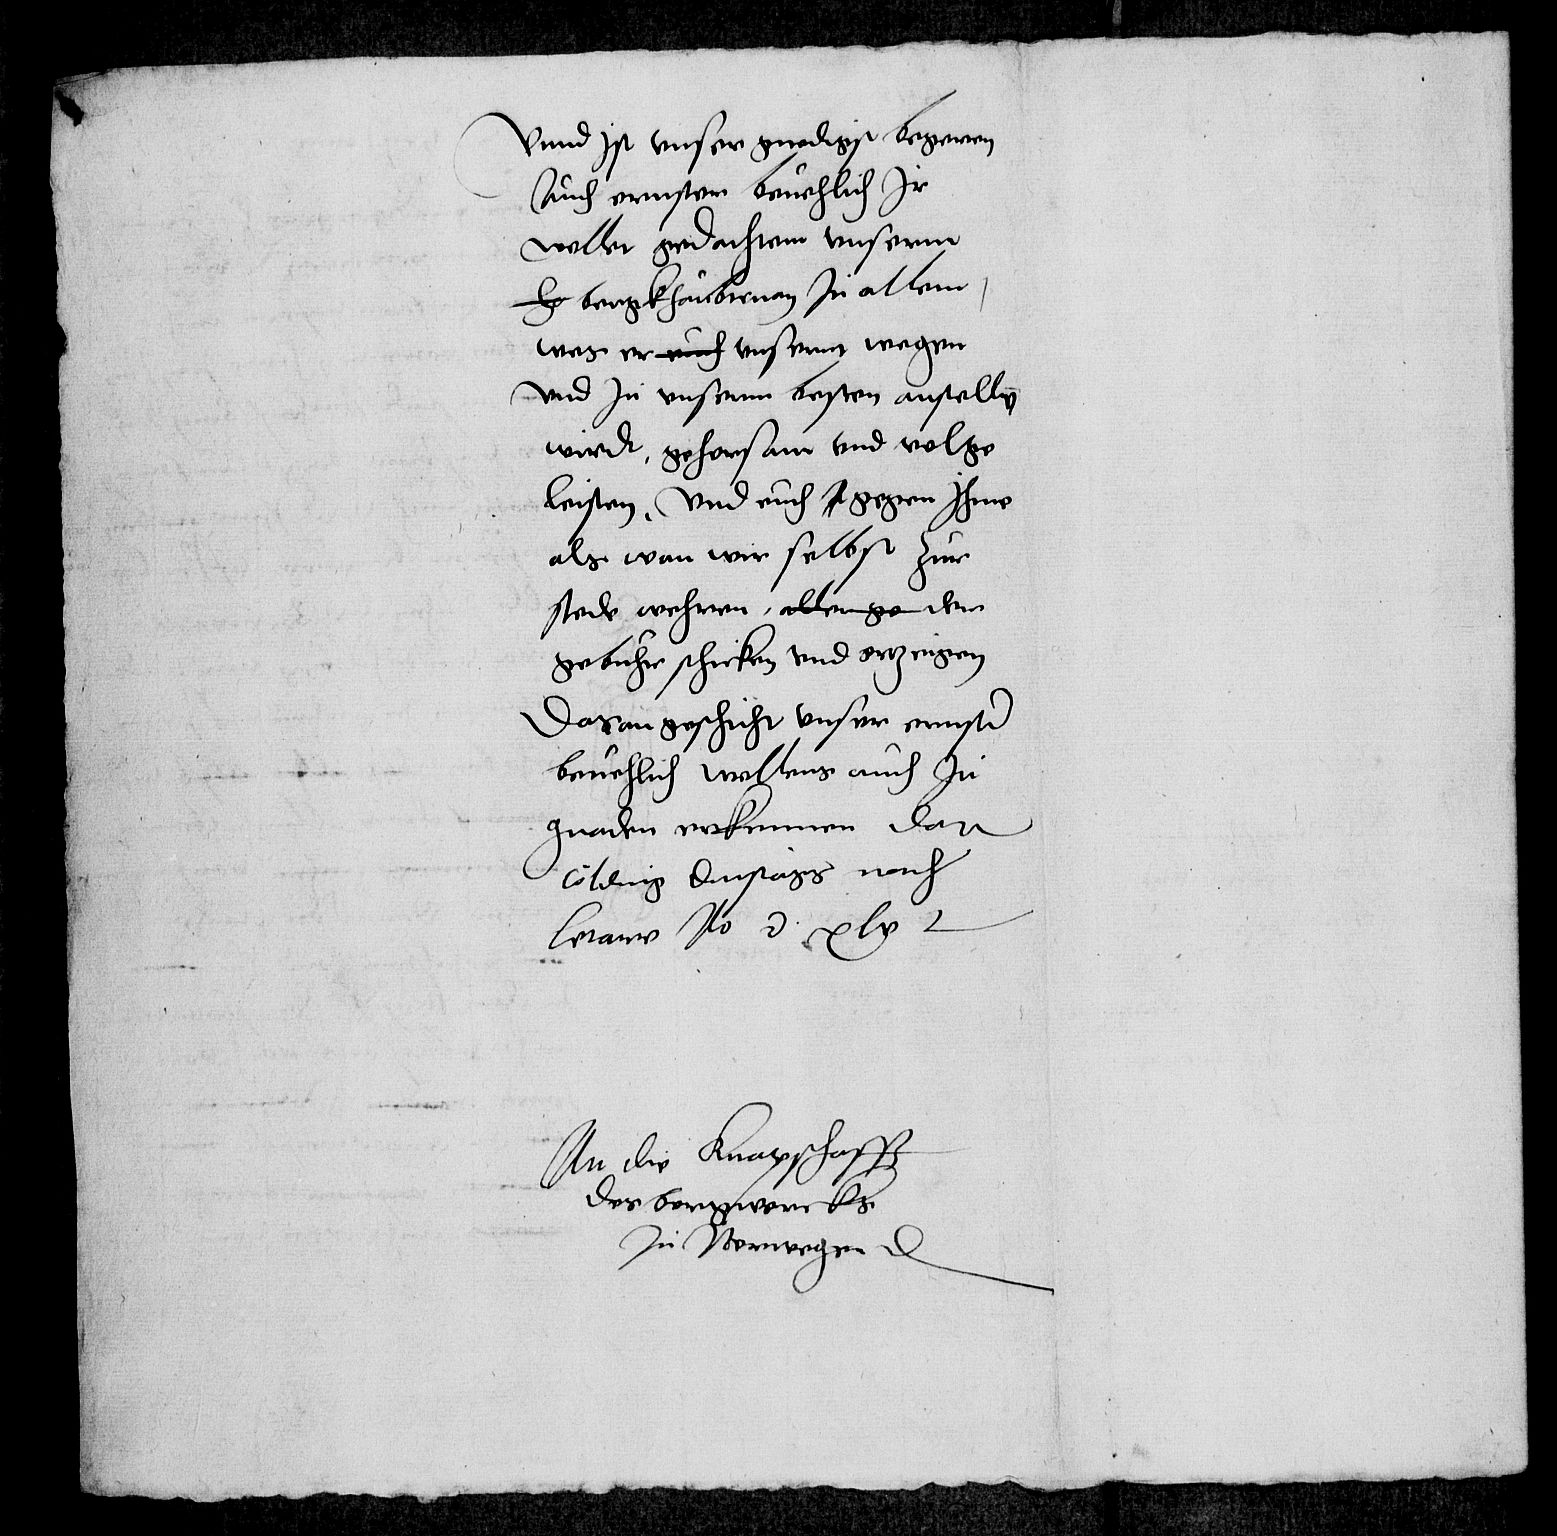 Vnnd ist vnser gnedigst begeren
Auch ernster beuehlich Ir
wellet gedachtem vnserm
bergkhaubtman In allem,
wes er euch vnsernt wegen
vnd In vnserm besten anstellen
wirdt, gehorsam vnd volge
leisten, Vnd euch gegen Ihme
als wan wir selbst zur
stede wehren, allen ge der
gebuhr schicken vnd ertzeigen
Daran geschicht vnser ernster
beuehlich wellens auch In
gnaden erkennen Dat
Coldnig Dinstags nach
letare Ao d xlv
An die Knapschafft
des bergwercks
In Norwegen